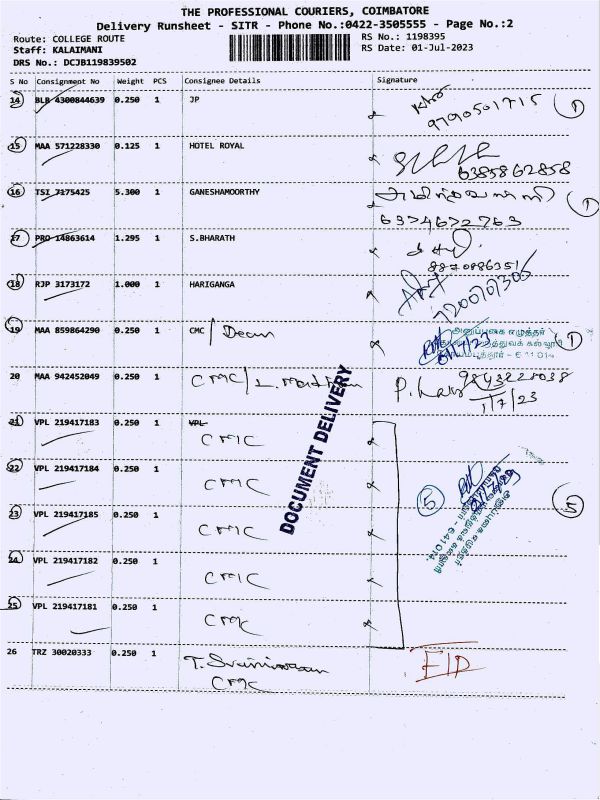 THE PROFESSIONAL COURIERS, COIMBATORE
Delivery Runsheet - SITR - Phone No.:0422-3505555 - Page No.:2
Route: COLLEGE ROUTE
RS No.: 1198395
Staff: KALAIMANI
RS Date: 01-Jul-2023
DRS No.: DCJB119839502
S No Consignment No Weight PCS Consignee Details Signature
14 BLB 4300844639 0.250 1 JP
9790501715 1
15 MAA 571228330 0.125 1 HOTEL ROYAL
6385862858
16 TSI 7175425 5.300 1 GANESHAMOORTHY
1
6374672763
17 PRO 14863614 1.295 1 S.BHARATH
8870886351
18 RJP 3173172 1.000 1 HARIGANGA
19 MAA 859864290 0.250 1 CMC / Dean
அனுப்புகை எழுத்தர் 1
- 641014
20 MAA 942452049 0.250 1 CMC /
1/7/23
21 VPL 219417183 0.250 1 VPL
CMC
22 VPL 219417184 0.250 1
CMC
DOCUMENT DELIVERY
5 5
23 VPL 219417185 0.250 1
CMC
24 VPL 219417182 0.250 1
CMC
25 VPL 219417181 0.250 1
CMC
26 TRZ 30020333 0.250 1
CMC